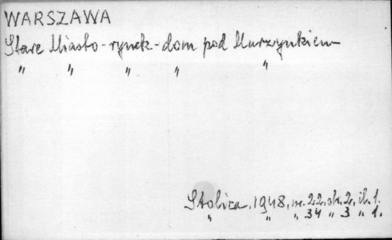 WARSZAWA
Stare Miasto - rynek - dom pod Murzynkiem
" " " " "
Stolica, 1948, nr. 22. str. 2, il. 1.
" " " 34 " 3 " 1.